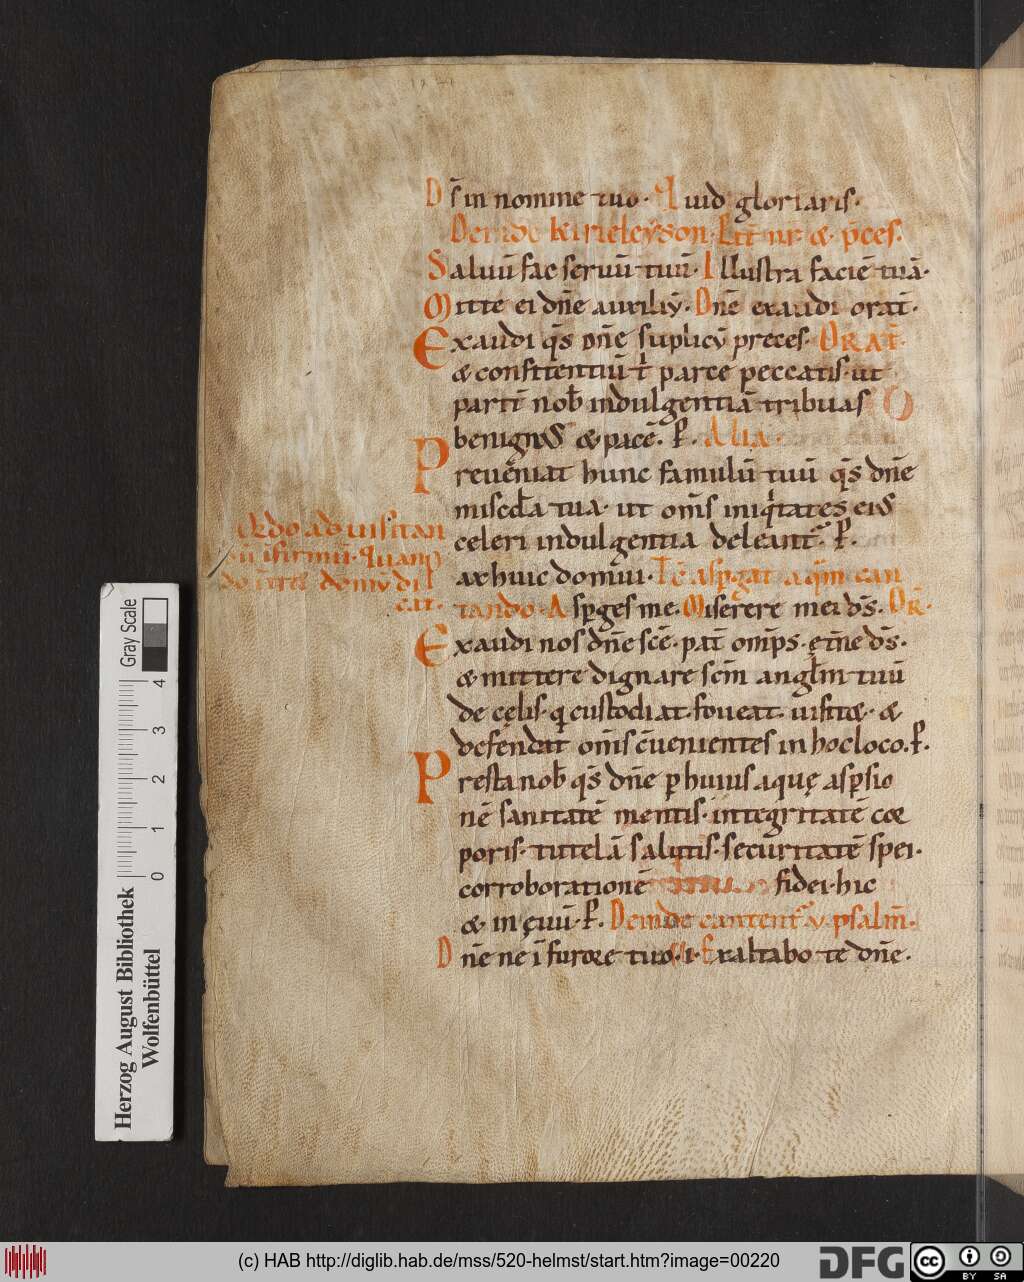 D s̄ in nomine tuo· Quid gloriaris·
Deinde kirieleyson· Pat̄ nr̄ & p̄ces·
Saluū fac seruū tuū· Illustra faciē tuā·
Mitte ei dn̄e auxiliū· Dn̄e exaudi orat̄·
Exaudi q̄s dn̄e suplicū preces· ORAT̄·
& confitentiū t' parce peccatis· ut
partī nob̄ indulgentiā tribuas
benignus & pacē· P̄· Alia·
Preueniat hunc famulū tuū q̄s dn̄e
miscd̄a tua· ut om̄s iniq'tates eius
celeri indulgentia deleant̄· P̄·
ordo ad uisitan
dū infirmū· Quan
do int̄ domū di
cat·
ax huic domui· asp̄gat aqm̄ can
tando· Asp̄ges me· Miserere mei ds̄· OR̄·
Exaudi nos dn̄e sc̄e· pat̄ om̄ps· et̄ne ds̄·
& mittere dignare scm̄ anglm̄ tuū
de cęlis· q custodiat· foueat· uisit&· &
defendat om̄s c̄uenientes in hoc loco· P̄·
Presta nob̄ q̄s dn̄e p̄ huius aquę asp̄sio
nē sanitatē mentis· integritatē cor
poris· tutelā salutis· securitatē spei·
corroborationē fidei· hic
& in ęuū· P̄· Deinde cantent̄ v psalm̄·
Dn̄e ne ī furore tuo· i· Exaltabo te dn̄e·
Herzog August Bibliothek
Wolfenbüttel
0 1 2 3 4
Gray Scale
(c) HAB http://diglib.hab.de/mss/520-helmst/start.htm?image=00220
DFG
cc BY SA